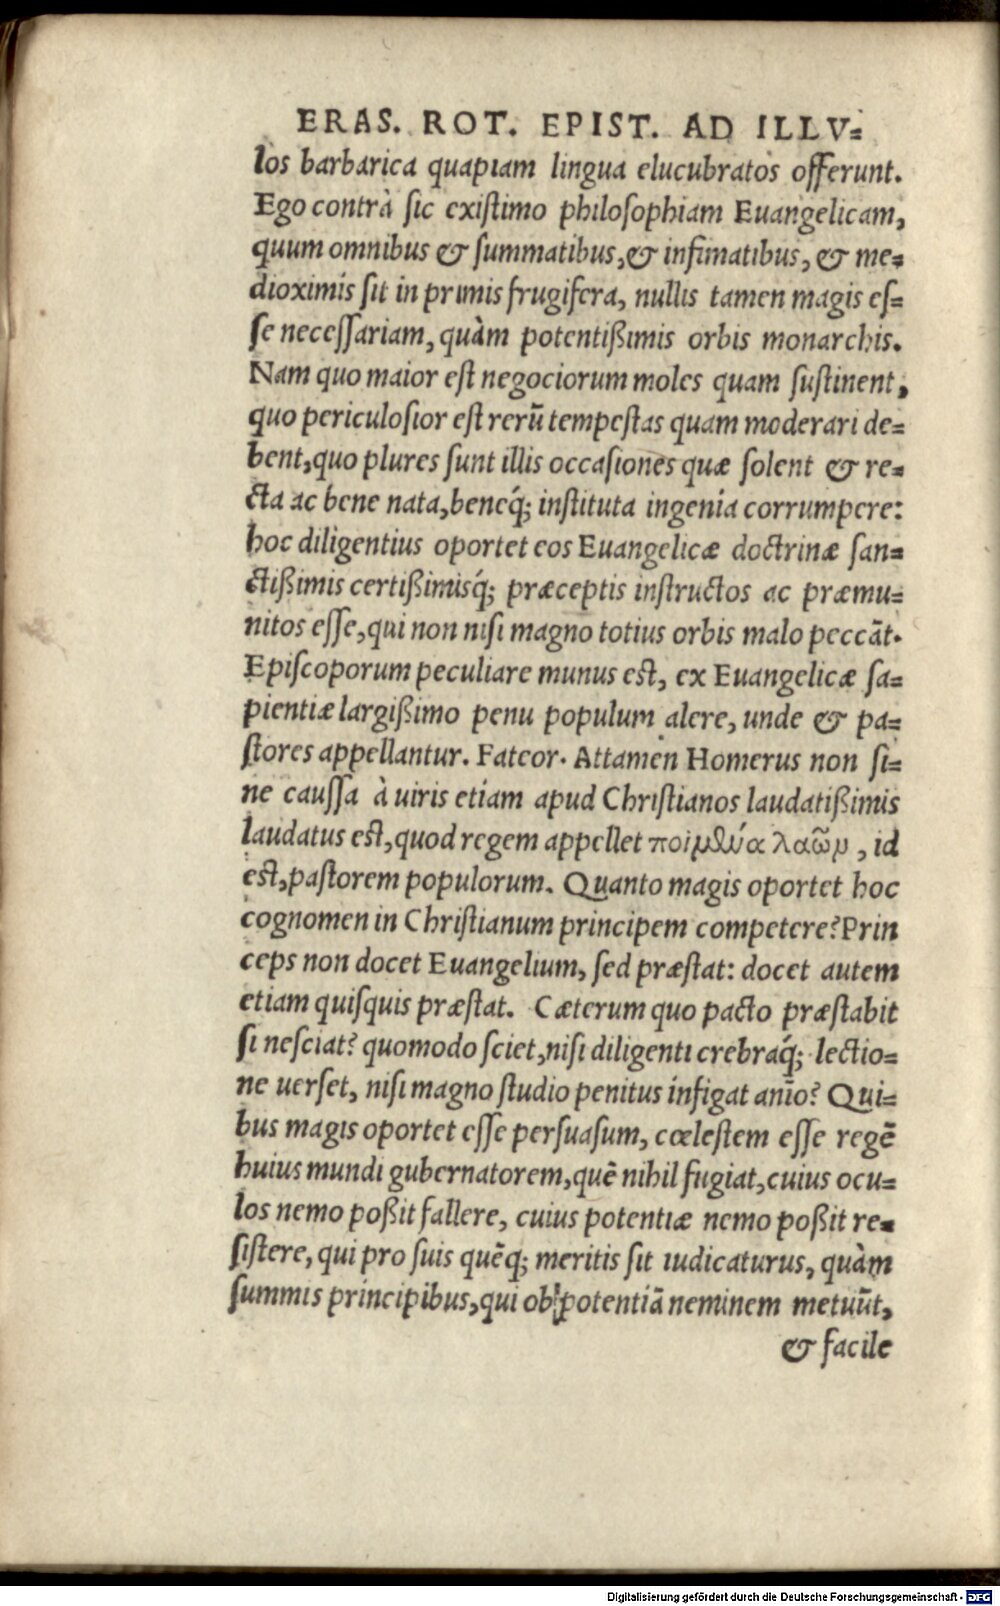 ERAS. ROT. EPIST. AD ILLV=
los barbarica quapiam lingua elucubratos offerunt.
Ego contrà sic existimo philosophiam Euangelicam,
quum omnibus & summatibus,& infimatibus, & me=
dioximis sit in primis frugifera, nullis tamen magis es=
se necessariam, quàm potentißimis orbis monarchis.
Nam quo maior est negociorum moles quam sustinent,
quo periculosior est rerū tempestas quam moderari de=
bent,quo plures sunt illis occasiones quæ solent & re=
cta ac bene nata,beneq́; instituta ingenia corrumpere:
hoc diligentius oportet eos Euangelicæ doctrinæ san=
ctißimis certißimisq́; præceptis instructos ac præmu=
nitos esse,qui non nisi magno totius orbis malo peccāt.
Episcoporum peculiare munus est, ex Euangelicæ sa=
pientiæ largißimo penu populum alere, unde & pa=
stores appellantur. Fateor. Attamen Homerus non si=
ne caussa à uiris etiam apud Christianos laudatißimis
laudatus est,quod regem appellet ποιμένα λαῶν, id
est,pastorem populorum. Quanto magis oportet hoc
cognomen in Christianum principem competere?Prin
ceps non docet Euangelium, sed præstat: docet autem
etiam quisquis præstat. Cæterum quo pacto præstabit
si nesciat? quomodo sciet,nisi diligenti crebraq́; lectio=
ne uerset, nisi magno studio penitus infigat anīo? Qui=
bus magis oportet esse persuasum, cœlestem esse regē
huius mundi gubernatorem,quē nihil fugiat,cuius ocu=
los nemo poßit fallere, cuius potentiæ nemo poßit re=
sistere, qui pro suis quēq; meritis sit iudicaturus, quàm
summis principibus,qui ob potentiā neminem metuūt,
& facile
Digitalisierung gefördert durch die Deutsche Forschungsgemeinschaft - DFG